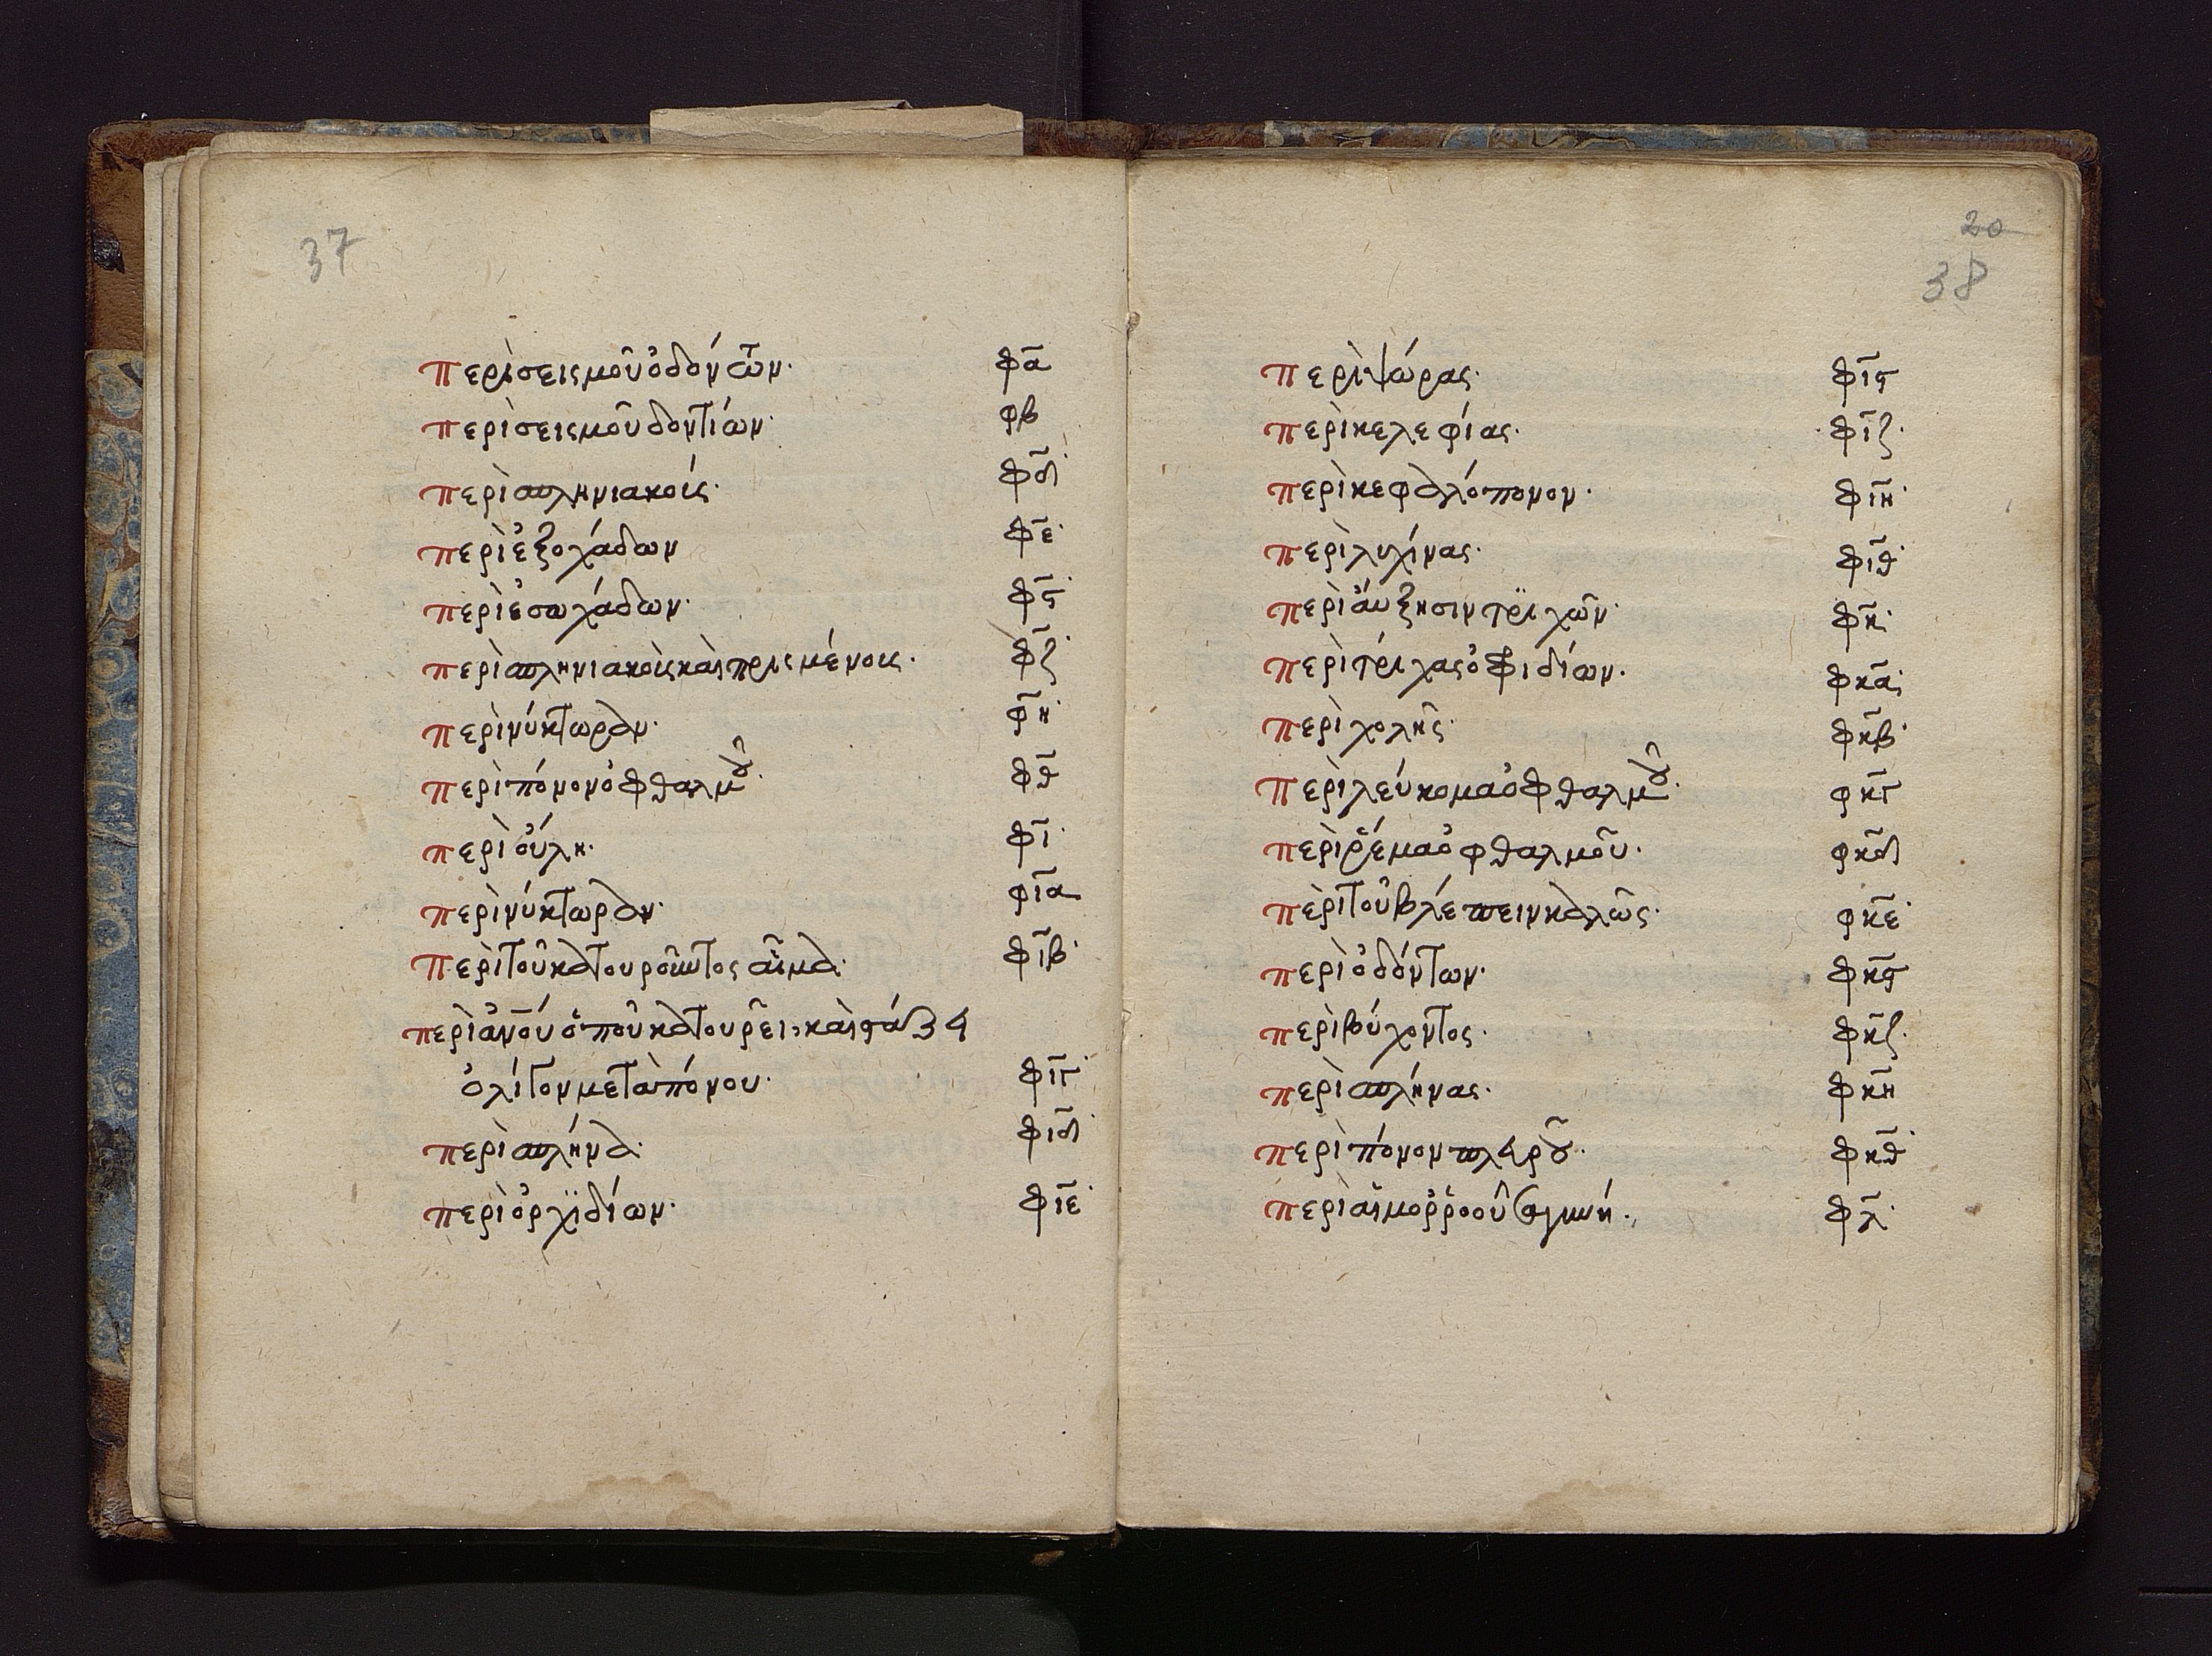 37
περὶ σεισμοῦ ὀδόντῶν· φα
περὶ σεισμοῦ δοντιών· φβ
περὶ σπληνιακοίς· φδ
περὶ ἐξοχάδων φε
περὶ ἐσωχάδων· φϛ
περὶ σπληνιακοὶς καὶ πρισμένοις· φζ
περὶ νύκτωραν· φη
περὶ πόνον ὀφθαλμοῦ· φθ
περὶ οὐλη· φι
περὶ νύκτωραν· φια
περὶ τοῦ κατουροῦντος αἷμα· φιβ
περὶ ἀνου ὁποῦ κατουρεῖ, καὶ στάζει
ὀλίγον μετὰ πόνου· φιγ
περὶ σπλήνα· φιδ
περὶ ὀρχϊδίων· φιε
20
38
περὶ ψώρας· φιϛ
περὶ κελεφίας· φιζ
περὶ κεφαλόπονον· φιη
περὶ λυχίνας· φιθ
περὶ ἄυξησιν τρϊχῶν· φκ
περὶ τρίχας ὀφιδίων· φκα
περὶ χολῆς· φκβ
περὶ λεύκομα ὀφθαλμοῦ· φκγ
περὶ ῥέμα ὀφθαλμοῦ· φκδ
περὶ τοῦ βλέπειν καλῶς· φκε
περὶ ὀδόντων· φκϛ
περὶ βύχοντος· φκζ
περὶ σπλήνας· φκη
περὶ πόνον πλεροῦ· φκθ
περὶ αἱμοῤῥοοῦσα γυνή· φλ